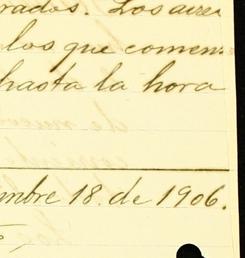 rados. Los aire
los que comen
hasta la hora
mbre 18. de 1906.